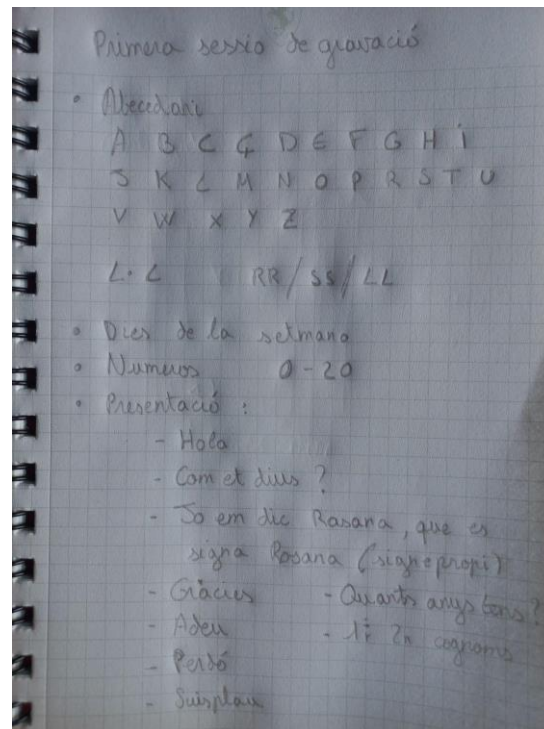 Primera sessio de gravació
• Abecedari
A B C Ç D E F G H I
J K L M N O P R S T U
V W X Y Z
L·L RR/SS/LL
• Dies de la setmana
• Numeros 0-20
• Presentació :
- Hola
- Com et dius ?
- Jo em dic Rosana, que es
signa Rosana (signe propi)
- Gràcies - Quants anys tens?
- Adeu - 1r 2n cognoms
- Perdó
- Suisplau